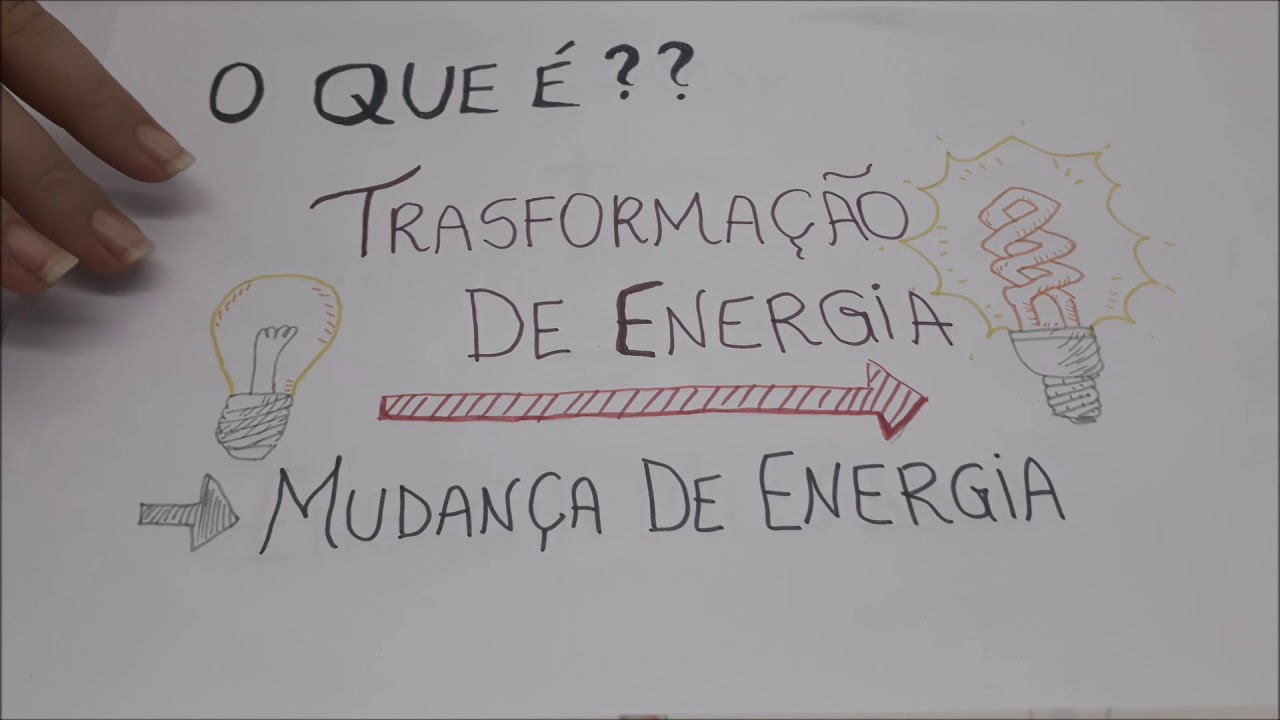 O QUE É ??
TRASFORMAÇÃO
DE ENERGIA
MUDANÇA DE ENERGIA